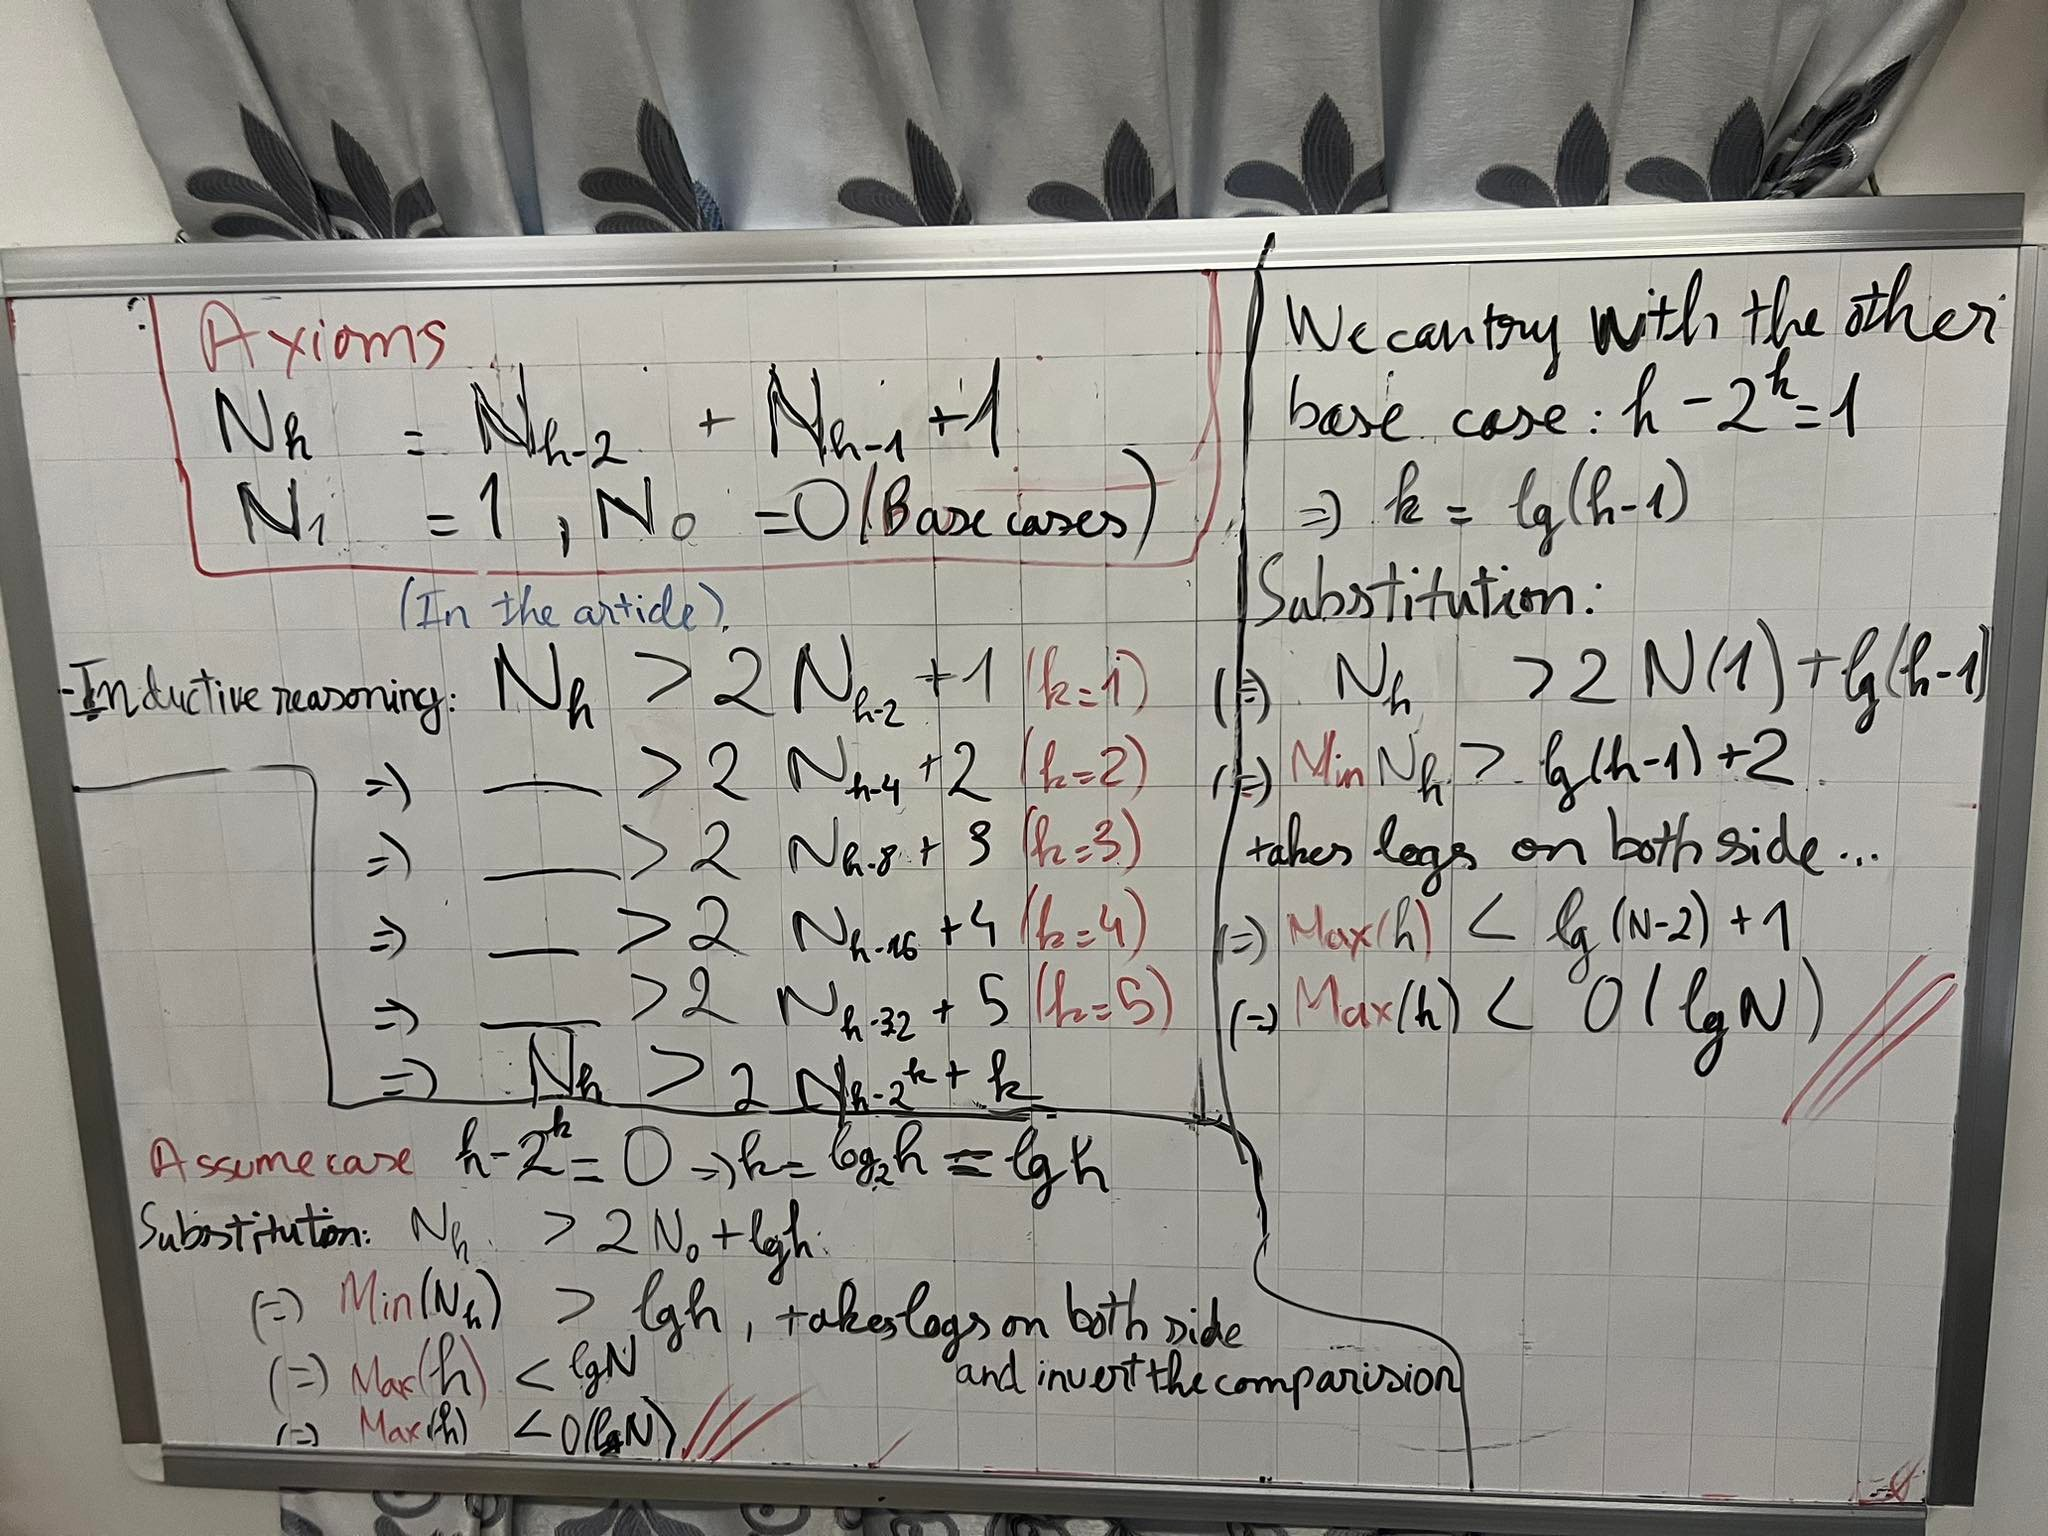 Axioms
N_h = N_{h-2} + N_{h-1} + 1
N_1 = 1 , N_0 = 0 (Base cases)
(In the article).
- Inductive reasoning: N_h > 2 N_{h-2} + 1 (k=1)
=> __ > 2 N_{h-4} + 2 (k=2)
=> __ > 2 N_{h-8} + 3 (k=3)
=> __ > 2 N_{h-16} + 4 (k=4)
=> __ > 2 N_{h-32} + 5 (k=5)
=> N_h > 2 N_{h-2^k} + k
Assume case h - 2^k = 0 => k = log_2 h = lg h
Substitution: N_h > 2 N_0 + lgh.
(=) Min(N_h) > lgh, takes logs on both side
and invert the comparision
(=) Max(h) < lgN
(=) Max(h) < O(lgN)
We can try with the other
base case: h - 2^k = 1
=> k = lg(h-1)
Substitution:
(=) N_h > 2 N(1) + lg(h-1)
(=) Min N_h > lg(h-1) + 2
takes logs on both side...
(=) Max(h) < lg (N-2) + 1
(=) Max(h) < O(lgN)